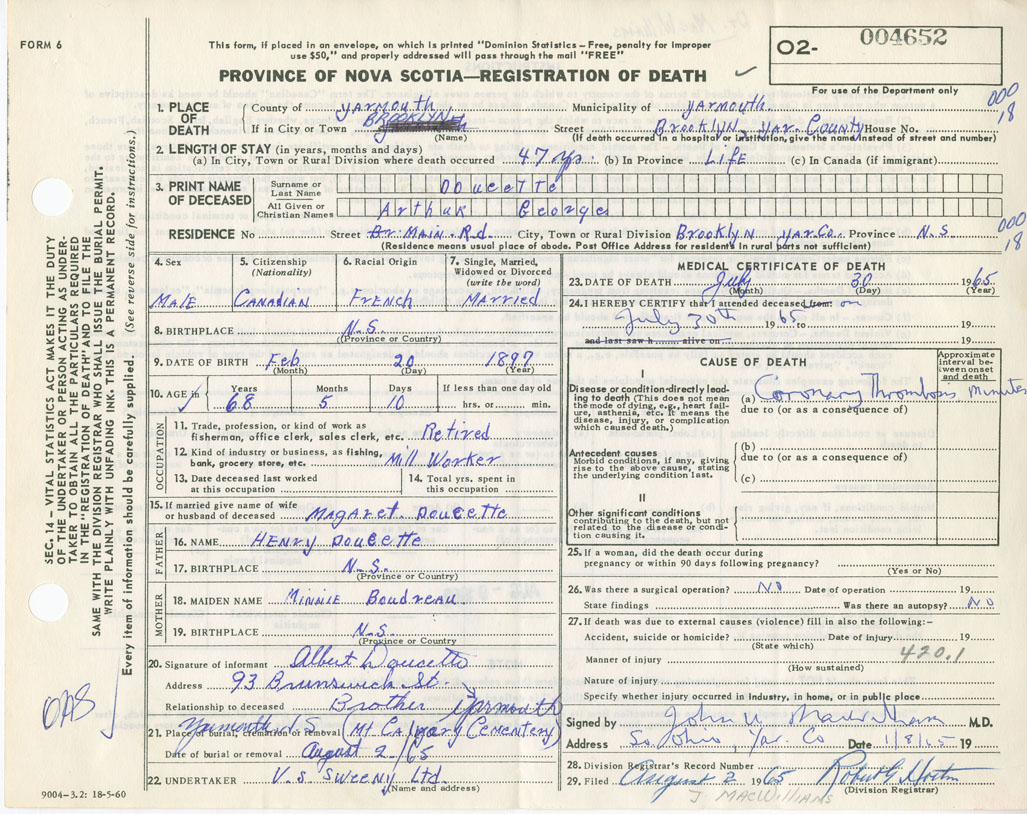 FORM 6
This form, if placed in an envelope, on which is printed "Dominion Statistics – Free, penalty for improper
use $50," and properly addressed will pass through the mail "FREE"
PROVINCE OF NOVA SCOTIA—REGISTRATION OF DEATH
02- 004652
For use of the Department only
000
18
1. PLACE OF DEATH
County of Yarmouth Municipality of Yarmouth
If in City or Town BROOKLYN Street Brooklyn, Yar. County House No.
(Name) (If death occurred in a hospital or institution, give the name instead of street and number)
2. LENGTH OF STAY (in years, months and days)
(a) In City, Town or Rural Division where death occurred 47 yrs. (b) In Province LIFE (c) In Canada (if immigrant)
3. PRINT NAME OF DECEASED
Surname or Last Name Doucette
All Given or Christian Names Arthur George
RESIDENCE No Street Br. Main Rd. City, Town or Rural Division Brooklyn Yar Co. Province N.S.
(Residence means usual place of abode. Post Office Address for residents in rural parts not sufficient)
000
18
4. Sex
MALE
5. Citizenship
(Nationality)
CANADIAN
6. Racial Origin
FRENCH
7. Single, Married,
Widowed or Divorced
(write the word)
Married
8. BIRTHPLACE N.S.
(Province or Country)
9. DATE OF BIRTH Feb 20 1897
(Month) (Day) (Year)
10. AGE in Years Months Days If less than one day old
68 5 10 hrs. or min.
OCCUPATION
11. Trade, profession, or kind of work as
fisherman, office clerk, sales clerk, etc. Retired
12. Kind of industry or business, as fishing,
bank, grocery store, etc. Mill Worker
13. Date deceased last worked
at this occupation
14. Total yrs. spent in
this occupation
15. If married give name of wife
or husband of deceased Magaret Doucette
FATHER
16. NAME HENRY Doucette
17. BIRTHPLACE N.S.
(Province or Country)
MOTHER
18. MAIDEN NAME MINNIE Boudreau
19. BIRTHPLACE N.S.
(Province or Country
20. Signature of informant Albert Doucette
Address 93 Brunswick St.
Yarmouth N.S.
Relationship to deceased Brother
21. Place of burial, cremation or removal (Mt Calvary Cementery) Yarmouth
Date of burial or removal August 2/65
22. UNDERTAKER V.S. SWEENY Ltd.
(Name and address)
MEDICAL CERTIFICATE OF DEATH
23. DATE OF DEATH July 30 1965
(Month) (Day) (Year)
24. I HEREBY CERTIFY that I attended deceased from: on
July 30th 1965 to 19
and last saw h alive on 19
CAUSE OF DEATH
Approximate
interval be-
tween onset
and death
I
Disease or condition directly lead-
ing to death (This does not mean
the mode of dying, e.g., heart fail-
ure, asthenia, etc. It means the
disease, injury, or complication
which caused death.)
(a) Coronary Thrombosis Minutes
due to (or as a consequence of)
Antecedent causes
Morbid conditions, if any, giving
rise to the above cause, stating
the underlying condition last.
(b)
due to (or as a consequence of)
(c)
II
Other significant conditions
contributing to the death, but not
related to the disease or condi-
tion causing it.
25. If a woman, did the death occur during
pregnancy or within 90 days following pregnancy?
(Yes or No)
26. Was there a surgical operation? NO Date of operation 19
State findings Was there an autopsy? NO
27. If death was due to external causes (violence) fill in also the following:–
Accident, suicide or homicide? Date of injury 19
(State which)
420.1
Manner of injury
(How sustained)
Nature of injury
Specify whether injury occurred in industry, in home, or in public place
Signed by M.D.
Address So. Ohio, Yar. Co Date 1/8/65 19
28. Division Registrar's Record Number
29. Filed August 2 1965 Robert G. Morton
(Division Registrar)
J. MACWILLIAMS
SEC. 14 – VITAL STATISTICS ACT MAKES IT THE DUTY
OF THE UNDERTAKER OR PERSON ACTING AS UNDER-
TAKER TO OBTAIN ALL THE PARTICULARS REQUIRED
IN THE "REGISTRATION OF DEATH" AND FILE THE
SAME WITH THE DIVISION REGISTRAR WHO SHALL ISSUE THE BURIAL PERMIT.
WRITE PLAINLY WITH UNFADING INK–THIS IS A PERMANENT RECORD.
Every item of information should be carefully supplied. (See reverse side for instructions.)
OAS
9004–3.2: 18-5-60